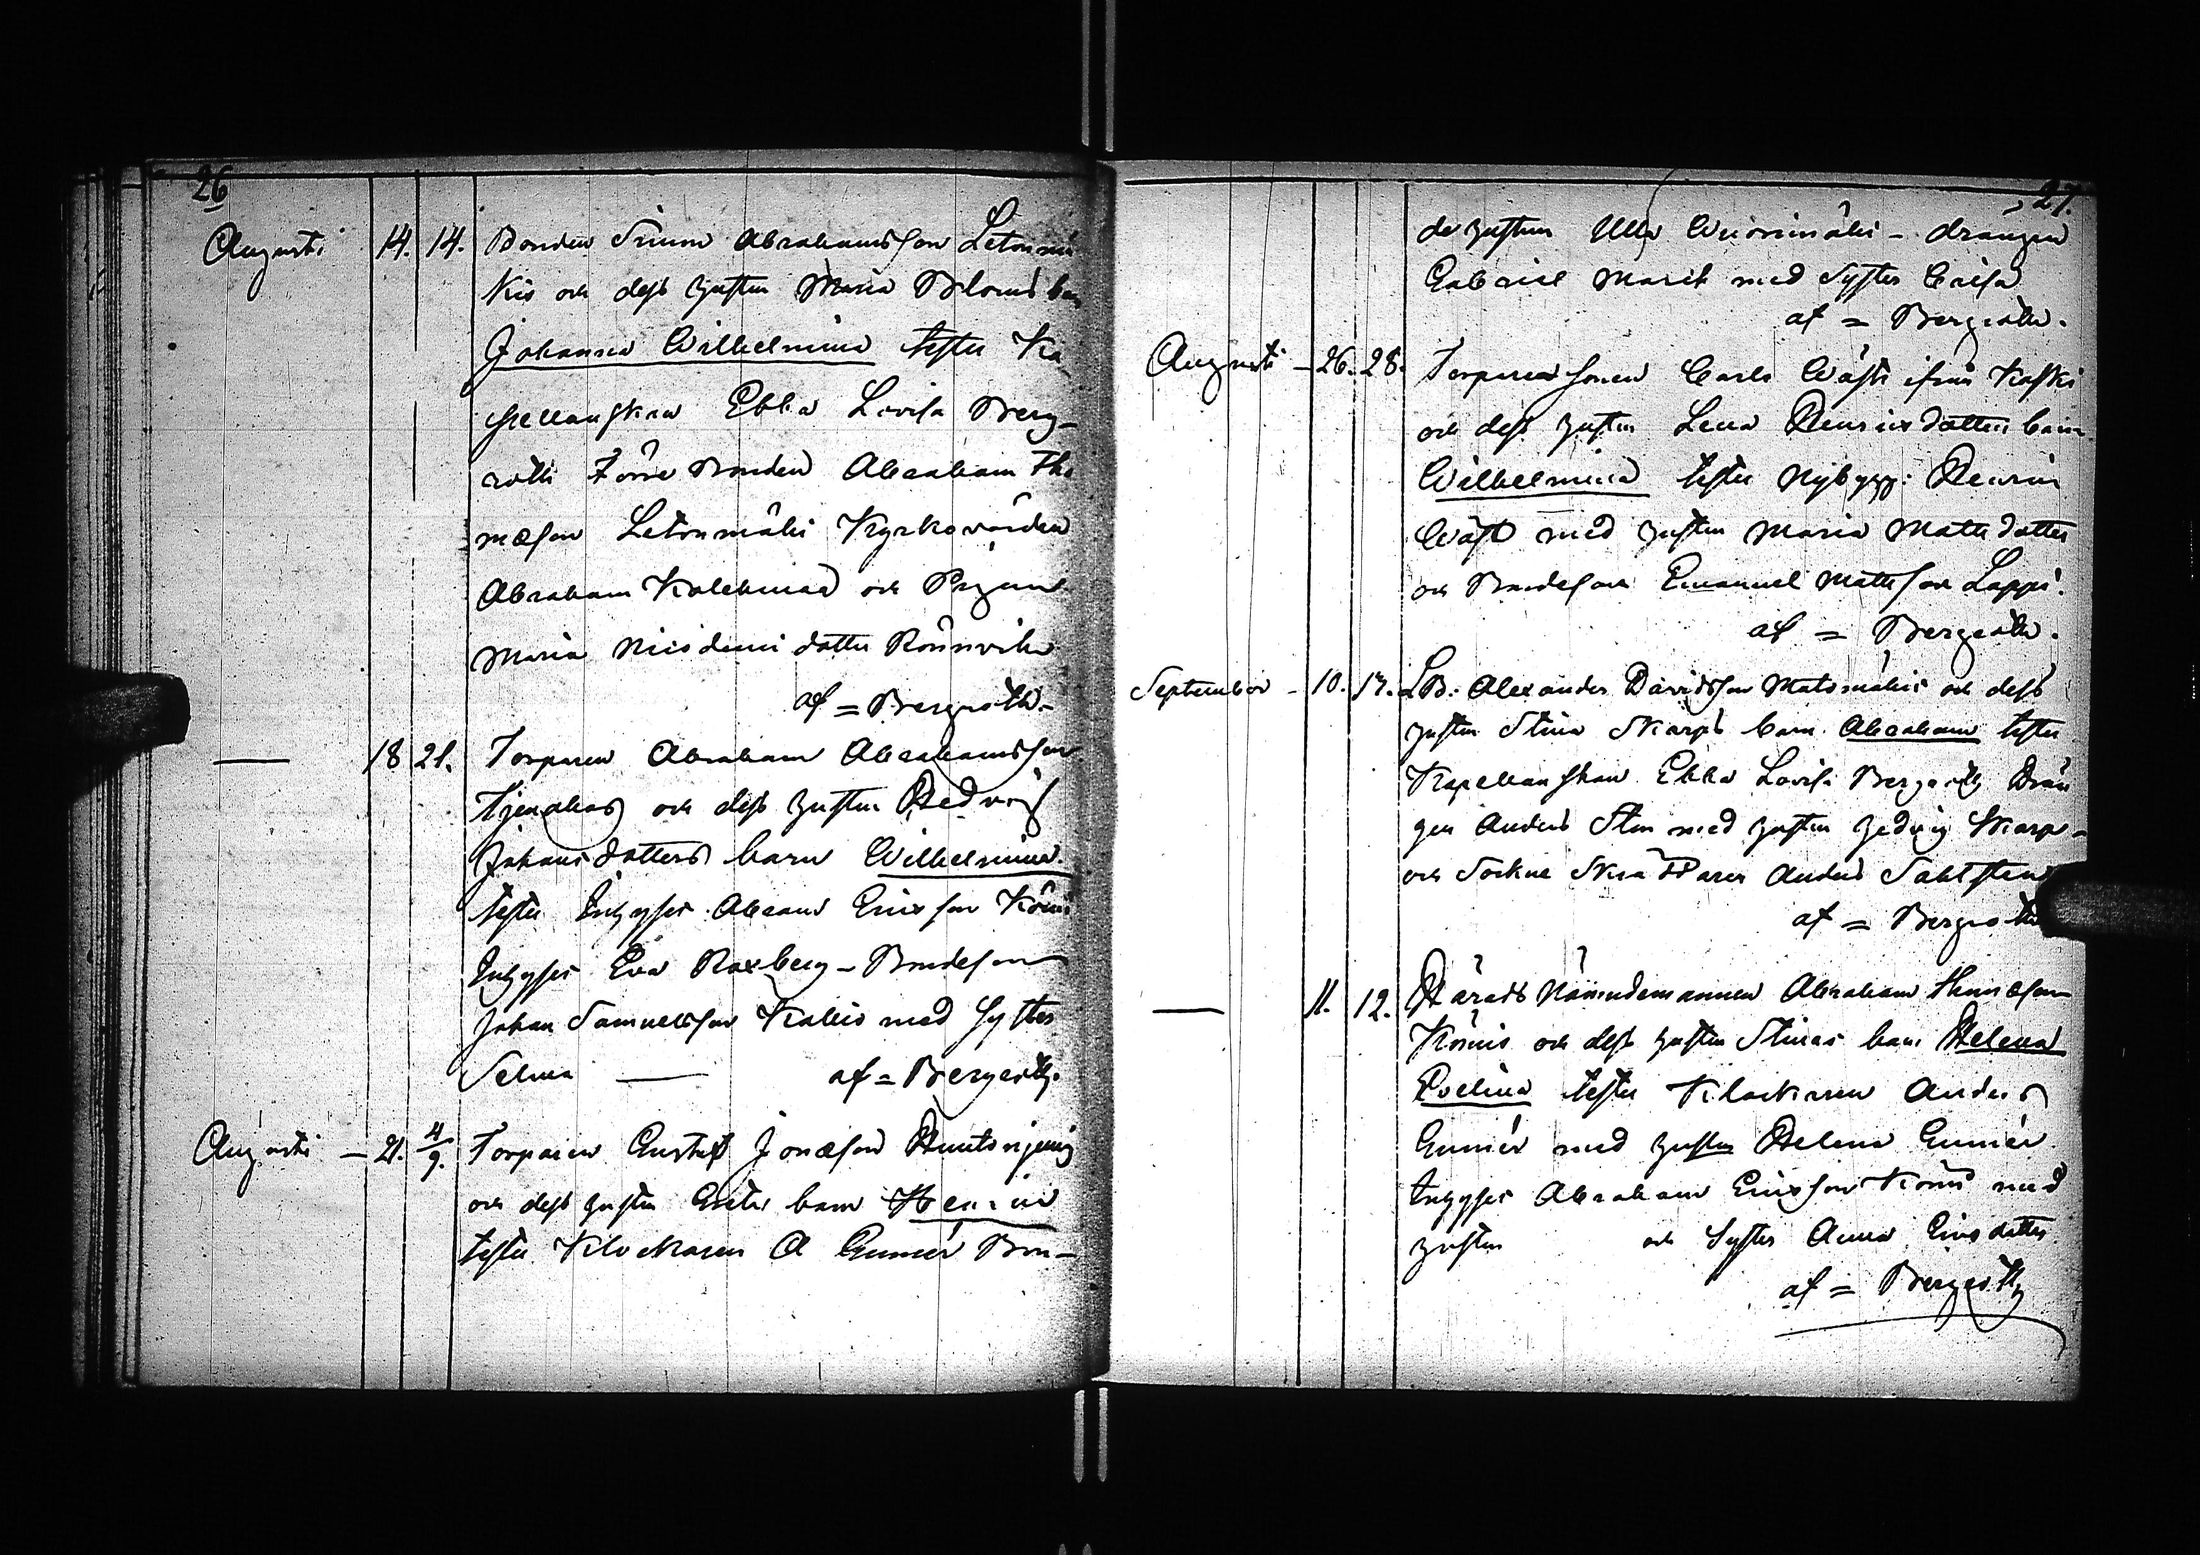 26
Augusti 14. 14. Bonden Simon Abrahamsson Letonmä
kis och dess hustru Maria Bloms barn
Johanna Wilhelmina testes Ka
pellanskan Ebba Lovisa Berg-
roth Förre Bonden Abraham Tho
mæson Letonmäki Kyrkovärden
Abraham Kalehmaa och Pigan
Maria Nicodemi dotter Rönnvik
af = Bergroth.
— 18 21. Torparen Abraham Abrahamsson
och dess hustru Hedvig
Johansdotters barn Wilhelmina
testes Inhyses Abram Ericsson Köni
Inhyses Eva Roxberg - Bondeson
Johan Samuelsson Kallio med Syster
Selma — af = Bergroth.
Augusti — 21. 4/9. Torparen Gustaf Jonæson
och dess hustru Greta barn Henric
testes Klockaren A Gumér Bon-
27.
de hustrun Ulla Wuorimäki - drängen
Gabriel Marck med Syster Caisa
af = Bergroth.
Augusti — 26. 28. Torparesonen Carl Wäst ifrån Kaski
och dess hustru Lena Henricsdotters barn
Wilhelmina testes Nybygg: Henric
Wäst med hustru Maria Mattsdotter
och Bondeson Emanuel Mattsson Lappi.
af = Bergroth.
September — 10. 17. LB: Alexander Davidsson Matomäkis och dess
hustru Stina Skarps barn Abraham testes
Kapellanskan Ebba Lovisa Bergroth Drän
gen Anders Sten med hustru Hedvig Skarp -
och Sockne Skräddaren Anders Sahlsten
af = Bergroth
— 11. 12. Härads Nämndemannen Abraham Thomæson
Könnis och dess hustru Stinas barn Helena
Evelina testes Klockaren Anders
Gumér med hustru Helena Gumér
Inhyses Abraham Ericsson Köni med
hustru och Syster Anna Ericsdotter
af = Bergroth